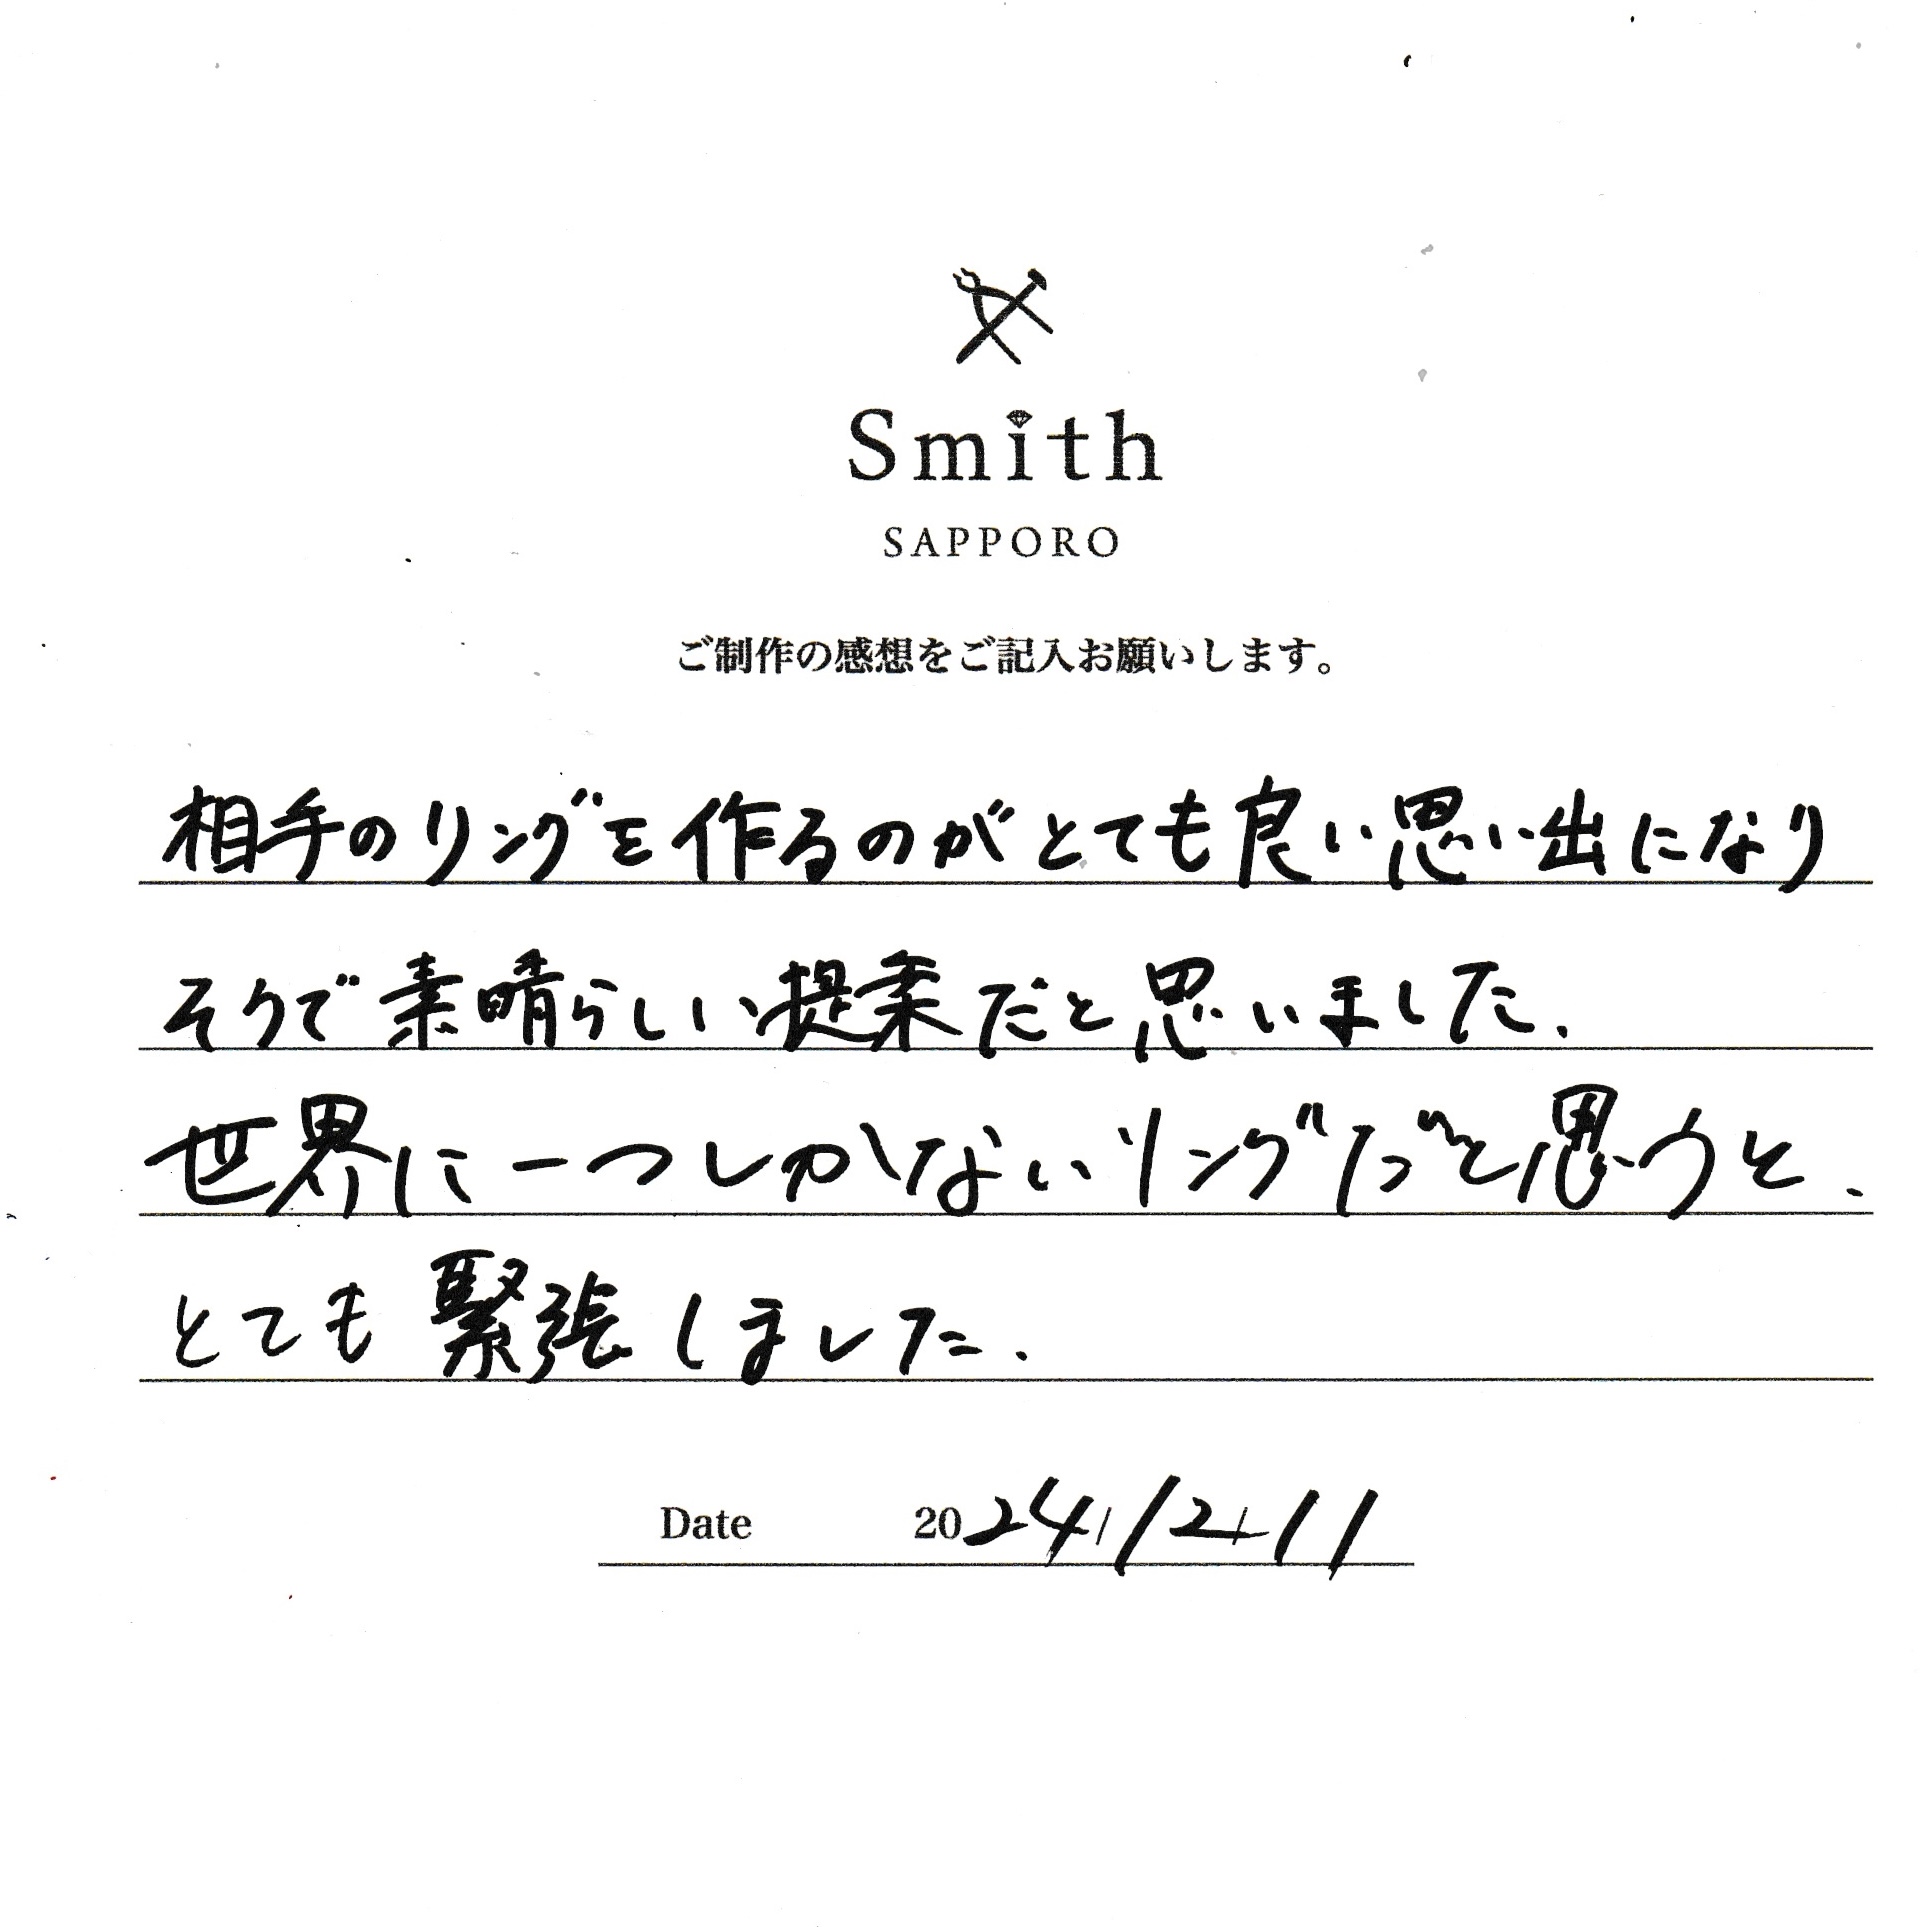 Smith
SAPPORO
ご制作の感想をご記入お願いします。
相手のリングを作るのがとても良い思い出になり
そうで素晴らしい提案だと思いました.
世界に一つしかないリングだと思うと、
とても緊張しました.
Date 2024/12/11